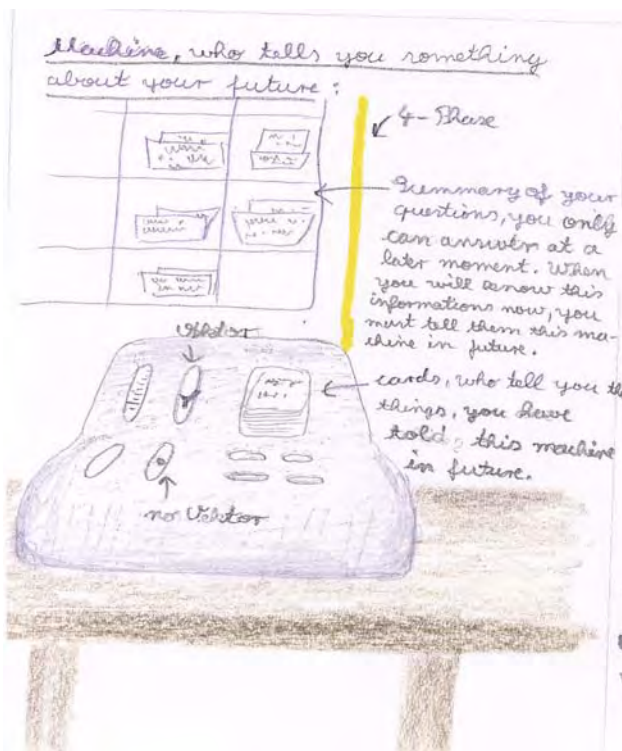 Machine, who tells you something
about your future:
4-Phase
Summary of your
questions, you only
can answer at a
later moment. When
you will know this
informations now, you
must tell them this ma-
chine in future.
Vektor
cards, who tell you the
things, you have
told this machine
in future.
no Vektor